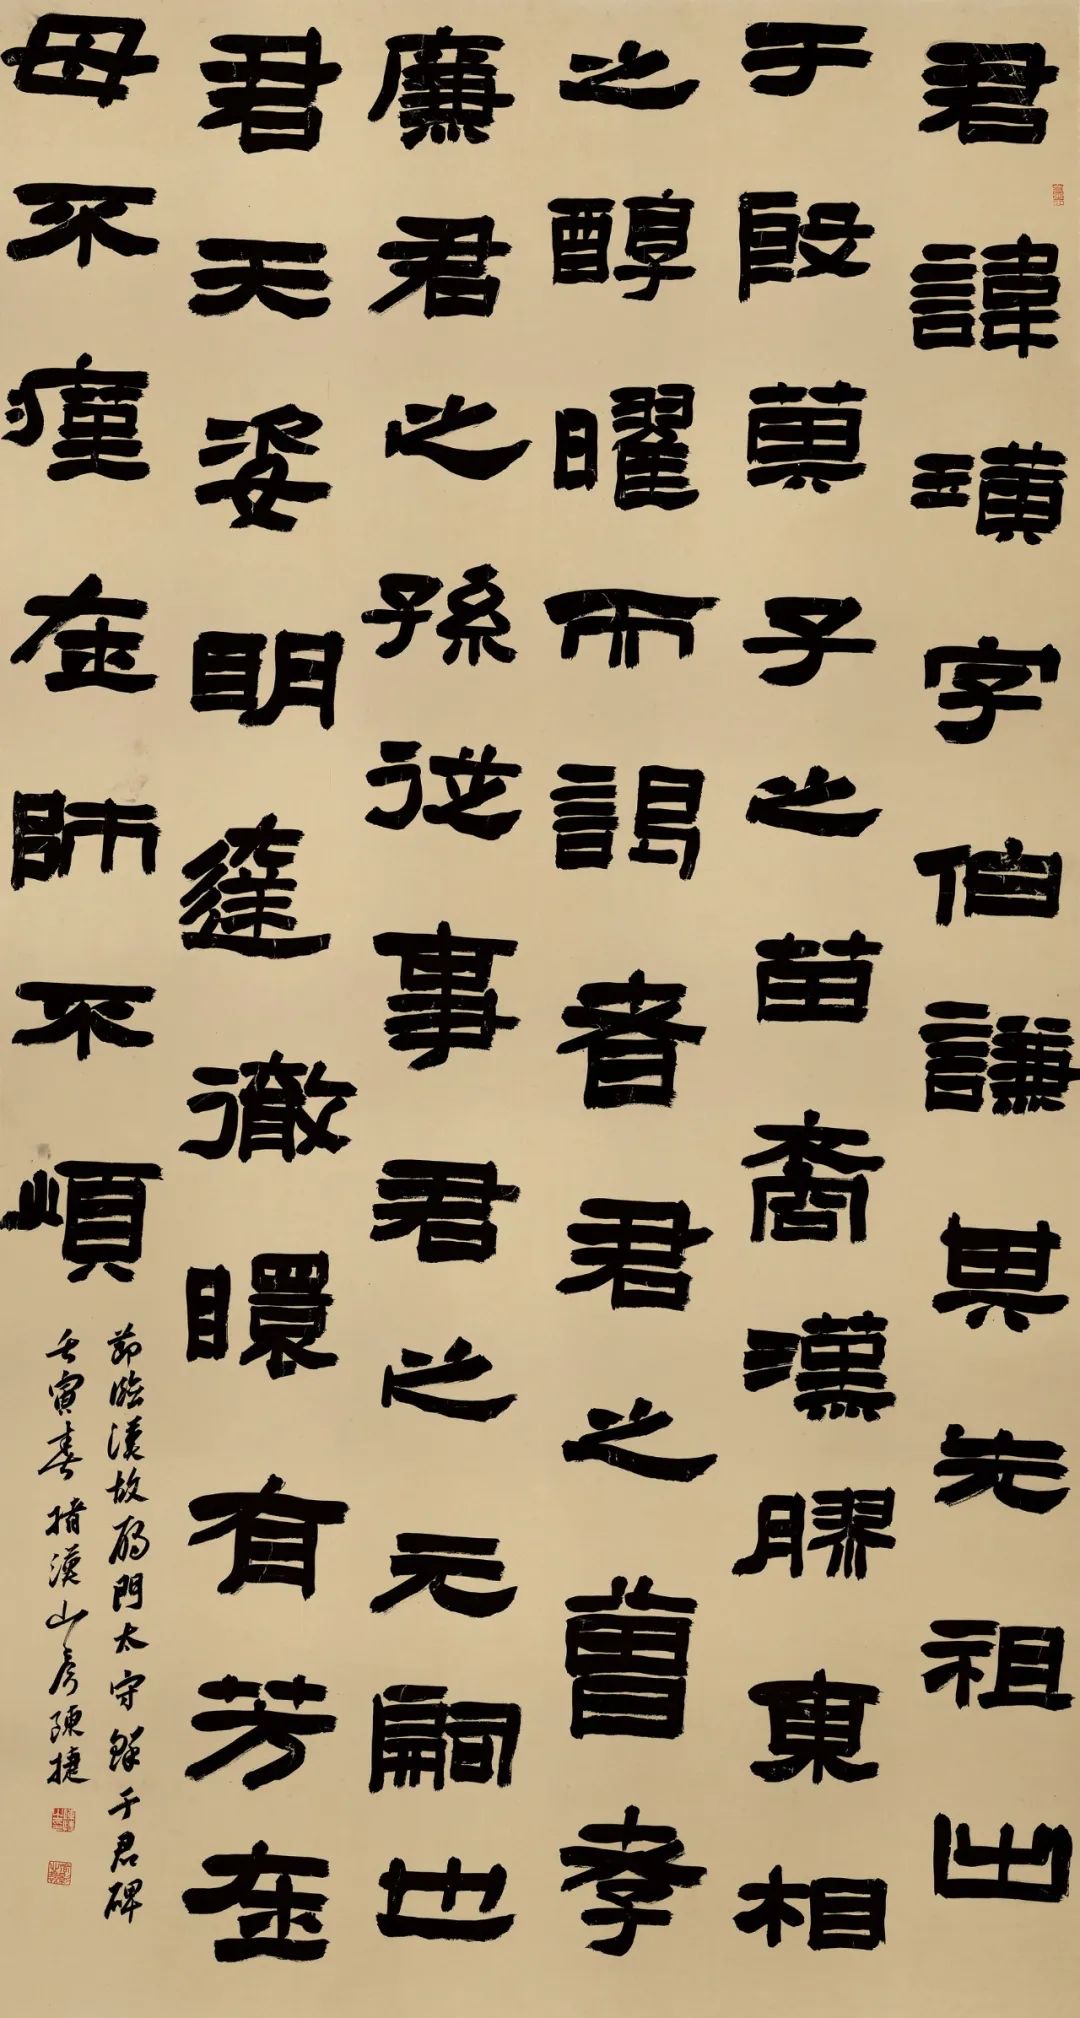 君諱璜字伯謙其先祖出
于殷萁子之苗裔漢膠東相
之醇曜而謁者君之曾孝
廉君之孫從事君之元嗣也
君天姿明達徹䁵有芳在
母不瘽在師不煩
節臨漢故雁門太守鮮于君碑
壬寅春漢山房陳捷